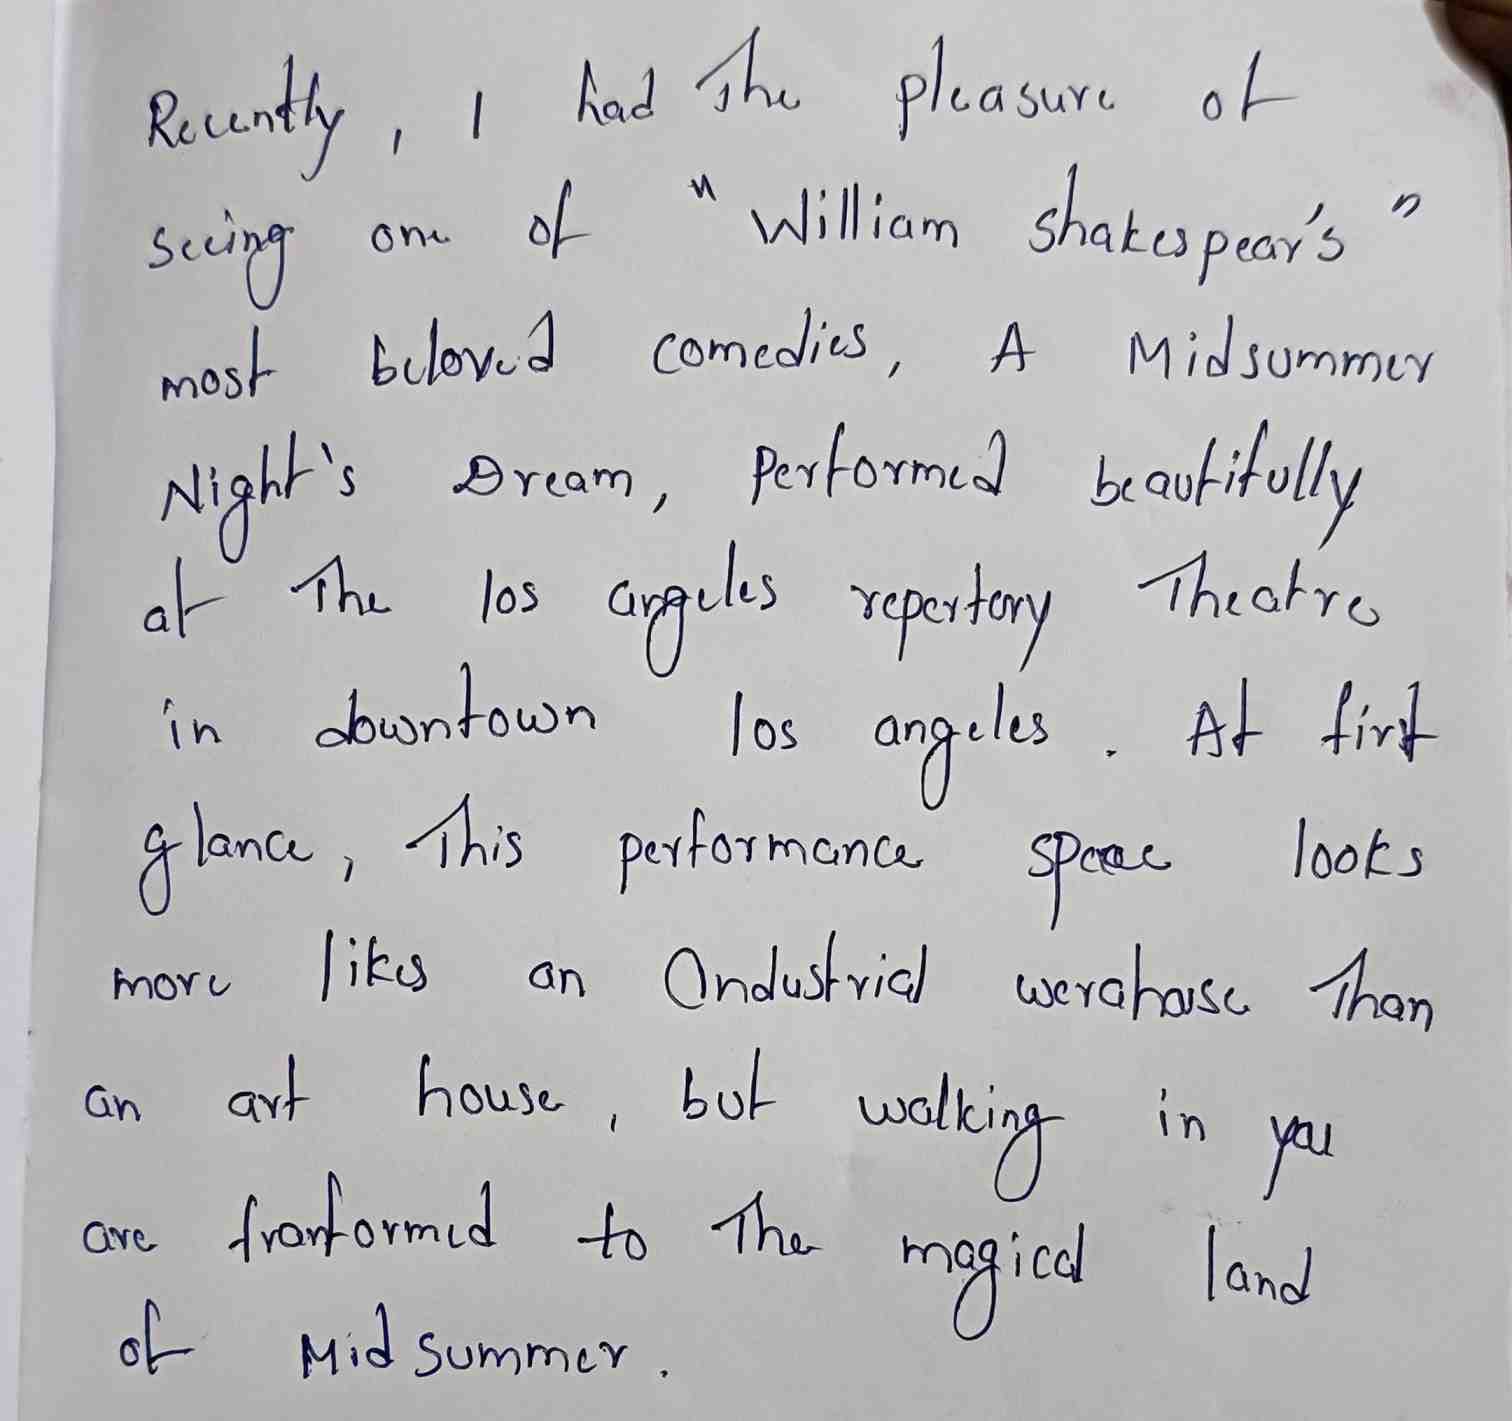 Recently, I had The pleasure of
seeing one of "William shakespear's"
most beloved comedies, A Midsummer
Night's Dream, Performed beautifully
at The los angeles repertory Theatre
in downtown los angeles. At first
glance, This performance space looks
more likes an Industrial werahouse Than
an art house, but walking in you
are tranformed to The magical land
of Midsummer.